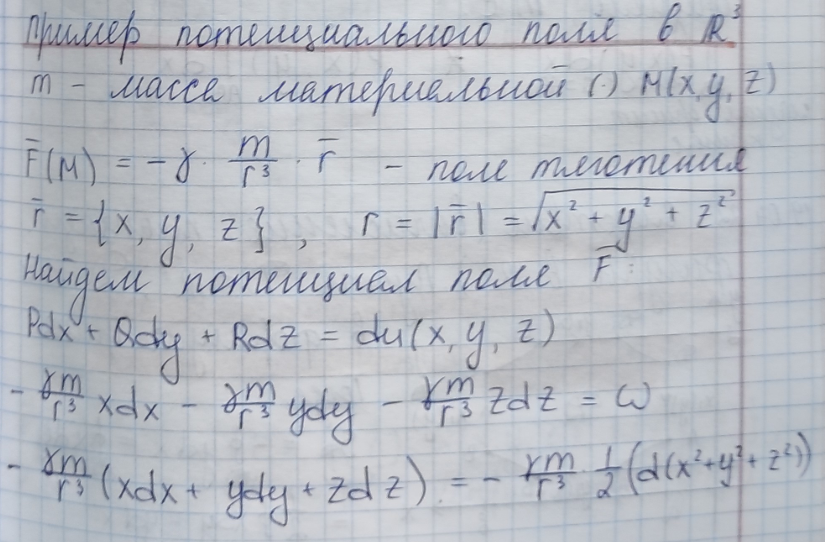 Пример потенциального поля в ℝ³
m – масса материальной (·) M(x, y, z)
F̄(M) = −γ · m/r³ · r̄ – поле тяготения
r̄ = {x, y, z}, r = |r̄| = √(x² + y² + z²)
Найдем потенциал поля F̄:
Pdx + Qdy + Rdz = du(x, y, z)
− γm/r³ xdx − γm/r³ ydy − γm/r³ zdz = ω
− γm/r³ (xdx + ydy + zdz) = − γm/r³ · 1/2 (d(x²+y²+z²))